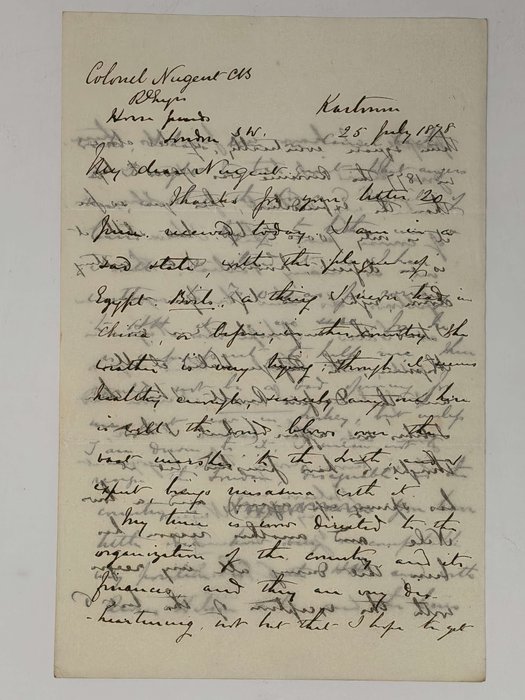 Colonel Nugent CB
R Engrs
Horse Guards
London SW.
Kartoum
25 July 1878
My dear Nugent
Thanks for your letter 20
June. received today. I am in a
sad state, with the plague of
Egypt. Boils, a thing I never had in
China, or before, in other country. The
weather is very trying, though it seems
healthy enough, scarcely any one here
is well the wind blows over the
vast marshes to the South and
brings miasma with it.
My time is now directed to the
organization of the country and its
finances, and they are very dis
-heartening, not but that I hope to get